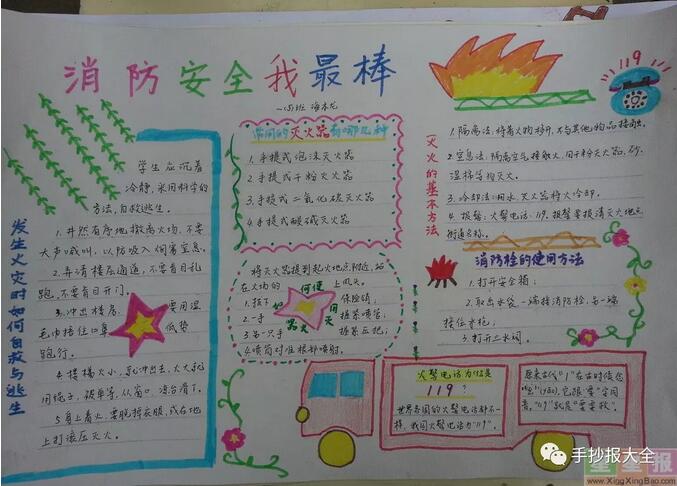 消防安全我最棒
一(5)班
发生火灾时如何自救与逃生
学生应沉着
冷静,采用科学的
方法,自救逃生。
1.井然有序地撤离火场,不要
大声喊叫,以防吸入烟雾窒息。
2.弄清楼层通道,不要盲目乱
跑,不要盲目开门。
3.冲出楼房,要用湿
毛巾捂住口鼻,低势
跑行。
4.楼梯火小,就冲出去,火大就
用绳子,被单等,从窗口,凉台滑下。
5.身上着火,要脱掉衣服,或在地
上打滚压灭火。
常用的灭火器有哪几种
1.手提式泡沫灭火器
2.手提式干粉灭火器
3.手提式二氧化碳灭火器
4.手提式酸碱灭火器
如何使用灭火器
将灭火器提到起火地点附近,站
在火场的上风头。
1.拔下保险销;
2.一手握紧喷管;
3.另一只手捏紧压把;
4.喷筒对准根部喷射。
119
灭火的基本方法
1.隔离法:将着火物移开,不与其他物品接触。
2.窒息法:隔离空气接触火,用干粉灭火器,砂,
湿棉等物灭火。
3.冷却法:用水,灭火器将火冷却。
4.报警:火警电话:119,报警要报清灭火地点
街道名称。
消防栓的使用方法
1.打开安全箱;
2.取出水袋一端接消防栓,另一端
接住水枪;
3.打开上水阀。
火警电话为什么是
119?
世界各国的火警电话都不一
样,我国火警电话为"119"。
原来古代"1"在古时候念
"幺"(yāo),它跟"要"字同
音,"119"就是"要要救"。
手抄报大全
星星报
www.XingXingBao.com